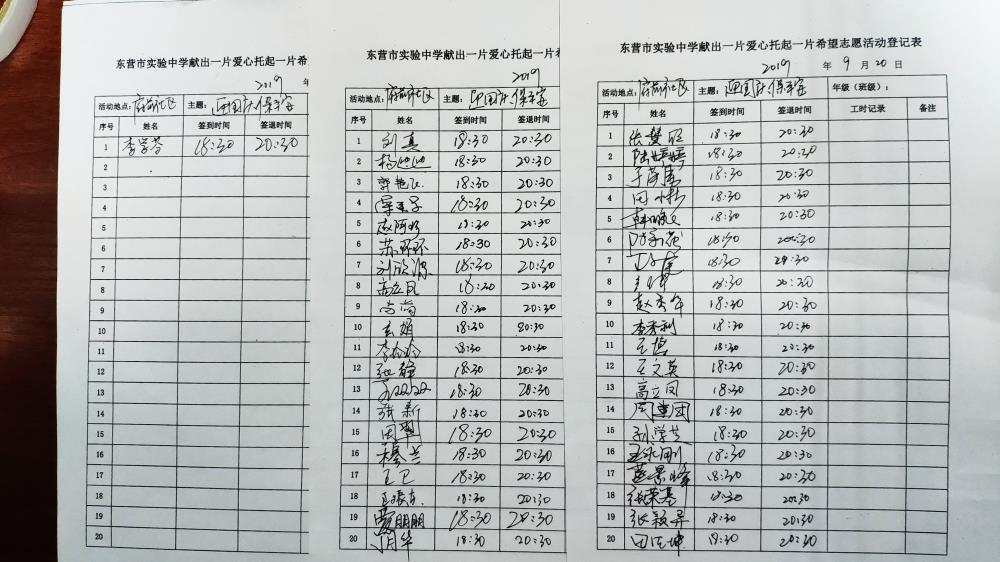 东营市实验中学献出一片爱心托起一片希
2019 年
活动地点: 府前社区 主题: 迎国庆保平安
序号 姓名 签到时间 签退时间
1 李学芬 18:30 20:30
2
3
4
5
6
7
8
9
10
11
12
13
14
15
16
17
18
19
20
东营市实验中学献出一片爱心托起一片希
2019
活动地点: 府前社区 主题: 迎国庆保平安
序号 姓名 签到时间 签退时间
1 刘真 18:30 20:30
2 18:30 20:30
3 郭艳 18:30 20:30
4 18:30 20:30
5 18:30 20:30
6 苏环环 18:30 20:30
7 刘欣源 18:30 20:30
8 高立凤 18:30 20:30
9 尚尚 18:30 20:30
10 18:30 20:30
11 18:30 20:30
12 张 18:30 20:30
13 18:30 20:30
14 张新 18:30 20:30
15 田 18:30 20:30
16 穆兰 18:30 20:30
17 王卫 18:30 20:30
18 18:30 20:30
19 朋朋 18:30 20:30
20 月华 18:30 20:30
东营市实验中学献出一片爱心托起一片希望志愿活动登记表
2019 年 9 月 20 日
活动地点: 府前社区 主题: 迎国庆保平安 年级（班级）:
序号 姓名 签到时间 签退时间 工时记录 备注
1 张慧 18:30 20:30
2 陆婷婷 18:30 20:30
3 18:30 20:30
4 田 18:30 20:30
5 韩晓文 18:30 20:30
6 18:30 20:30
7 18:30 20:30
8 18:30 20:30
9 赵秀军 18:30 20:30
10 李秀利 18:30 20:30
11 王 18:30 20:30
12 王文英 18:30 20:30
13 高立凤 18:30 20:30
14 周 18:30 20:30
15 孙学芝 18:30 20:30
16 王永刚 18:30 20:30
17 景峰 18:30 20:30
18 张荣基 18:30 20:30
19 张颖异 18:30 20:30
20 田 坤 18:30 20:30